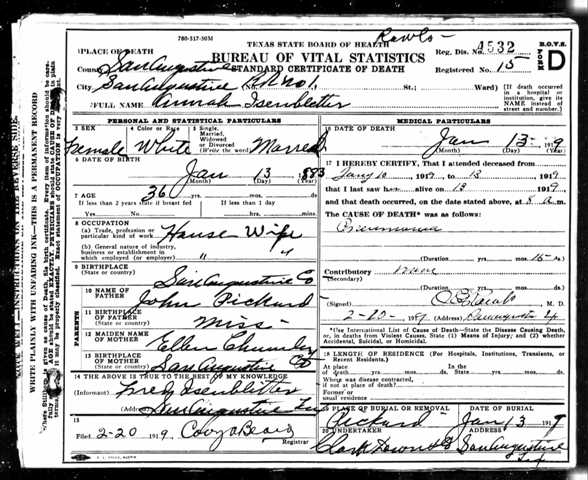 780-517-50M
TEXAS STATE BOARD OF HEALTH
BUREAU OF VITAL STATISTICS
STANDARD CERTIFICATE OF DEATH
Reg. Dis. No. 4532
Registered No. 15
B.O.V.S.
FORM D
PLACE OF DEATH
County San Augustine
City San Augustine (No. RR no 1, St.; Ward)
[If death occurred in a hospital or institution, give its NAME instead of street and number.]
FULL NAME Annah Isenbletter
PERSONAL AND STATISTICAL PARTICULARS
3 SEX Female
4 Color or Race White
5 Single, Married, Widowed or Divorced (Write the word) Married
6 DATE OF BIRTH
Jan 13 1883
(Month) (Day) (Year)
7 AGE 36
If less than 2 years state if breast fed
If less than 1 day
Yes No hrs. mins.
8 OCCUPATION
(a) Trade, profession or particular kind of work House Wife
(b) General nature of industry, business or establishment in which employed (or employer) " "
9 BIRTHPLACE (State or country) San Augustine Co
10 NAME OF FATHER John Pickard
11 BIRTHPLACE OF FATHER (State or country) Miss
12 MAIDEN NAME OF MOTHER Ellen Chumley
13 BIRTHPLACE OF MOTHER (State or country) San Augustine Co
PARENTS
14 THE ABOVE IS TRUE TO THE BEST OF MY KNOWLEDGE
(Informant) Fred Isenbletter
(Address) San Augustine Tex
15
Filed 2-20 1919
Registrar
MEDICAL PARTICULARS
16 DATE OF DEATH
Jan 13 1919
(Month) (Day) (Year)
17 I HEREBY CERTIFY, That I attended deceased from
Jany 10 1919 to 13 1919
that I last saw her alive on 13 1919
and that death occurred, on the date stated above, at 8 a.m.
The CAUSE OF DEATH* was as follows:
Pneumonia
(Duration) yrs. mos. ds.
Contributory none
(Secondary)
(Duration) yrs. mos. ds.
(Signed) M.D.
(Address) San Augustine Tex
*Use International List of Cause of Death—State the Disease Causing Death, or, in deaths from Violent Causes, State (1) Means of Injury; and (2) whether Accidental, Suicidal, or Homicidal.
18 LENGTH OF RESIDENCE (For Hospitals, Institutions, Transients, or Recent Residents.)
At place of death yrs. mos. ds. In the State yrs. mos. ds.
Where was disease contracted, if not at place of death?
Former or usual residence
19 PLACE OF BURIAL OR REMOVAL Pickard
DATE OF BURIAL Jan 13 1919
20 UNDERTAKER Clark Downs
ADDRESS San Augustine Tex
WRITE PLAINLY WITH UNFADING INK—THIS IS A PERMANENT RECORD